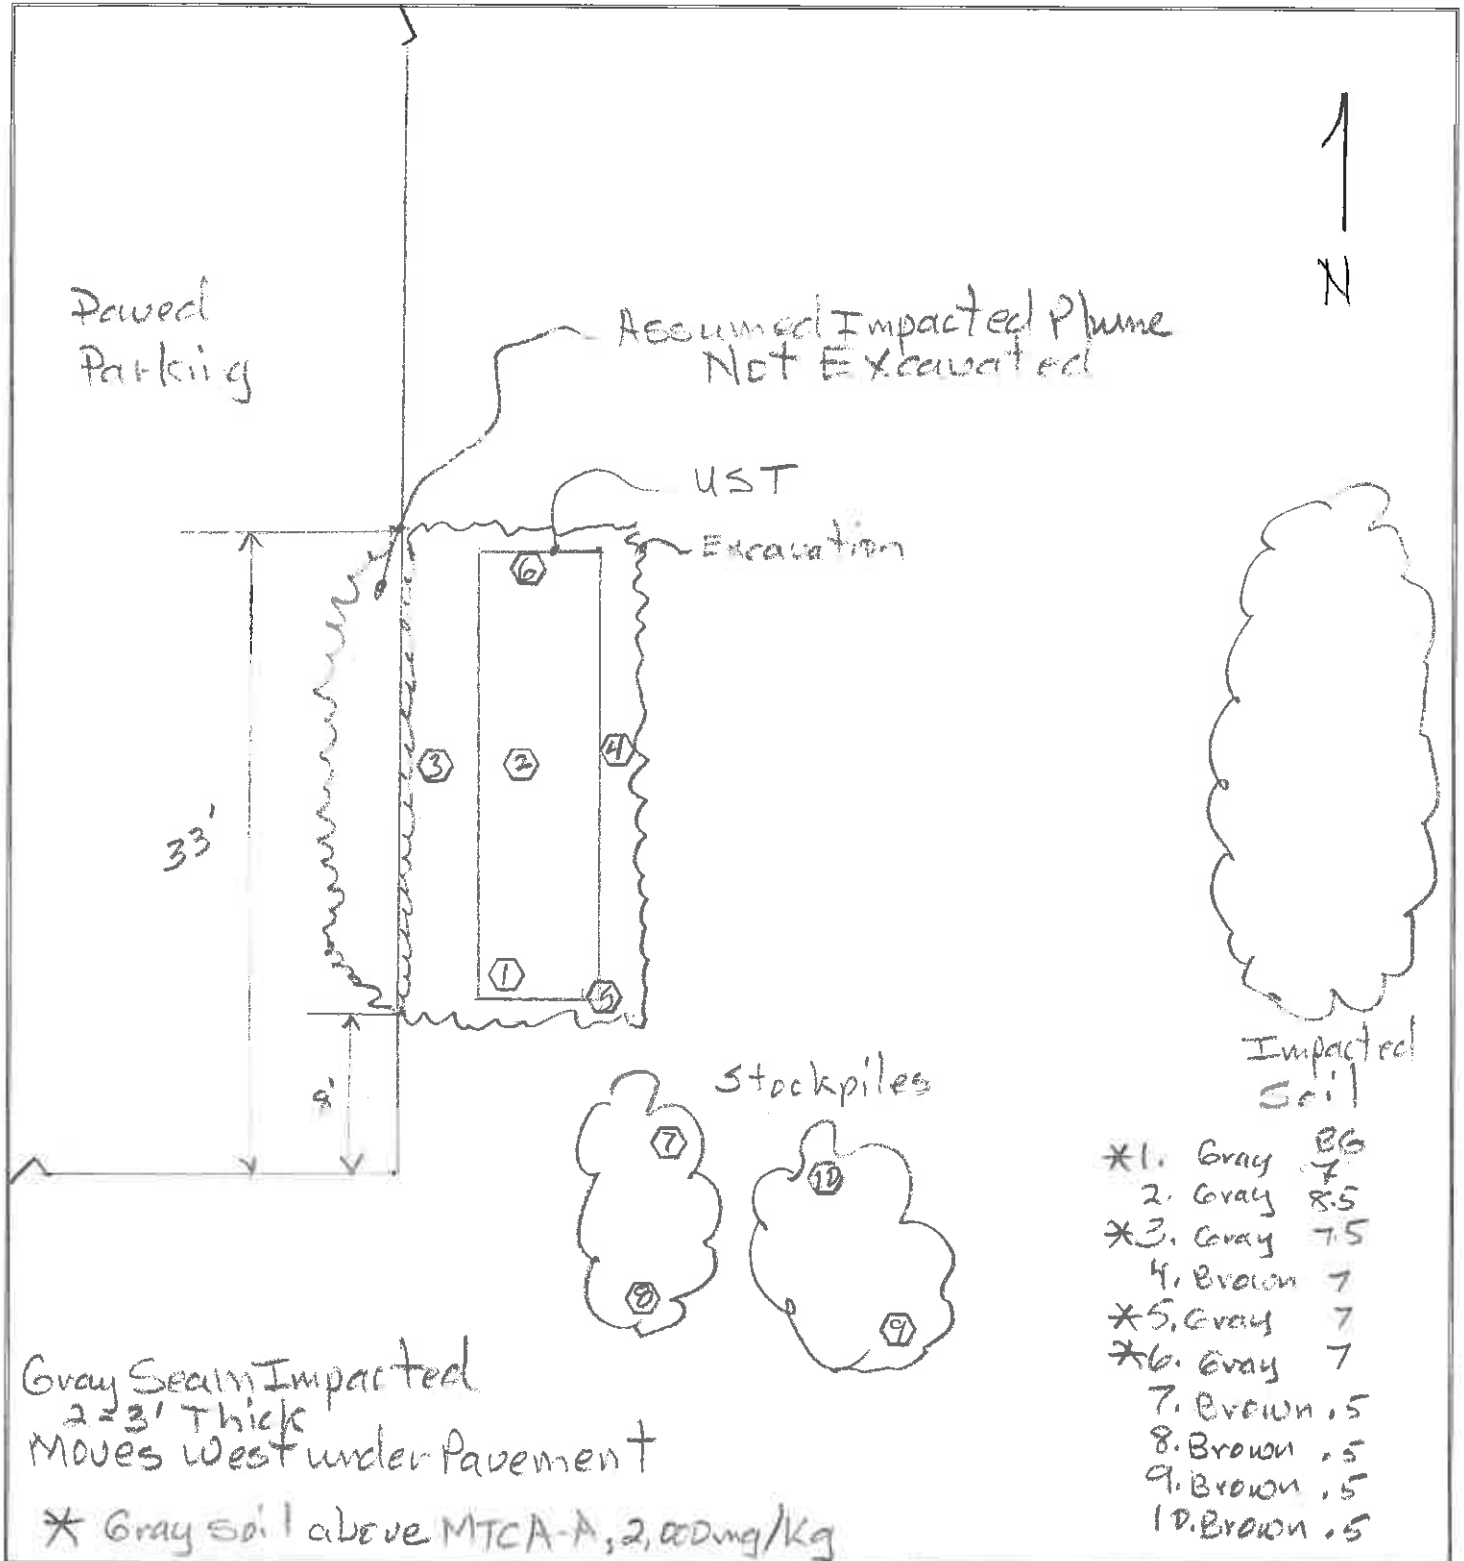 N
Paved
Parking
Assumed Impacted Plume
Not Excavated
UST
Excavation
6
3
2
4
33'
1
5
8'
Stockpiles
Impacted
Soil
7
10
8
9
BG
*1. Gray 7
2. Gray 8.5
*3. Gray 7.5
4. Brown 7
*5. Gray 7
*6. Gray 7
7. Brown .5
8. Brown .5
9. Brown .5
10. Brown .5
Gray Seam Impacted
2-3' Thick
Moves West under Pavement
* Gray soil above MTCA-A, 2,000mg/Kg